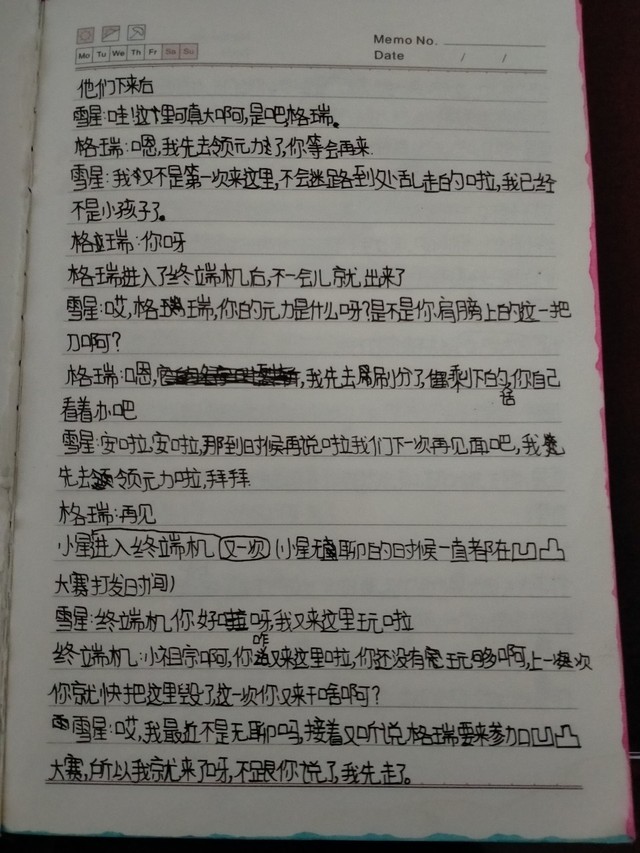 Memo No.
Mo Tu We Th Fr Sa Su
Date / /
他们下来后
雪星:哇!这里可真大啊,是吧,格瑞。
格瑞:嗯,我先去领元力了,你等会再来.
雪星:我又不是第一次来这里,不会迷路到处乱走的啦,我已经
不是小孩子了。
格瑞:你呀
格瑞进入了终端机后,不一会儿就出来了
雪星:哎,格瑞,你的元力是什么呀?是不是你肩膀上的拉一把
刀啊?
格瑞:嗯,我先去刷分了,剩下的话,你自己
看着办吧
雪星:安啦安啦,那到时候再说啦我们下一次再见面吧,我
先去领元力啦,拜拜
格瑞:再见
小星又一次进入终端机(小星无聊的时候一直都在凹凸
大赛打发时间)
雪星:终端机你好呀,我又来这里玩啦
终端机:小祖宗啊,你咋又来这里啦,你还没有玩够啊,上一次
你就快把这里毁了这一次你又来干啥啊?
雪星:哎,我最近不是无聊吗,接着又听说格瑞要来参加凹凸
大赛,所以我就来了呀,不跟你说了,我先走了。